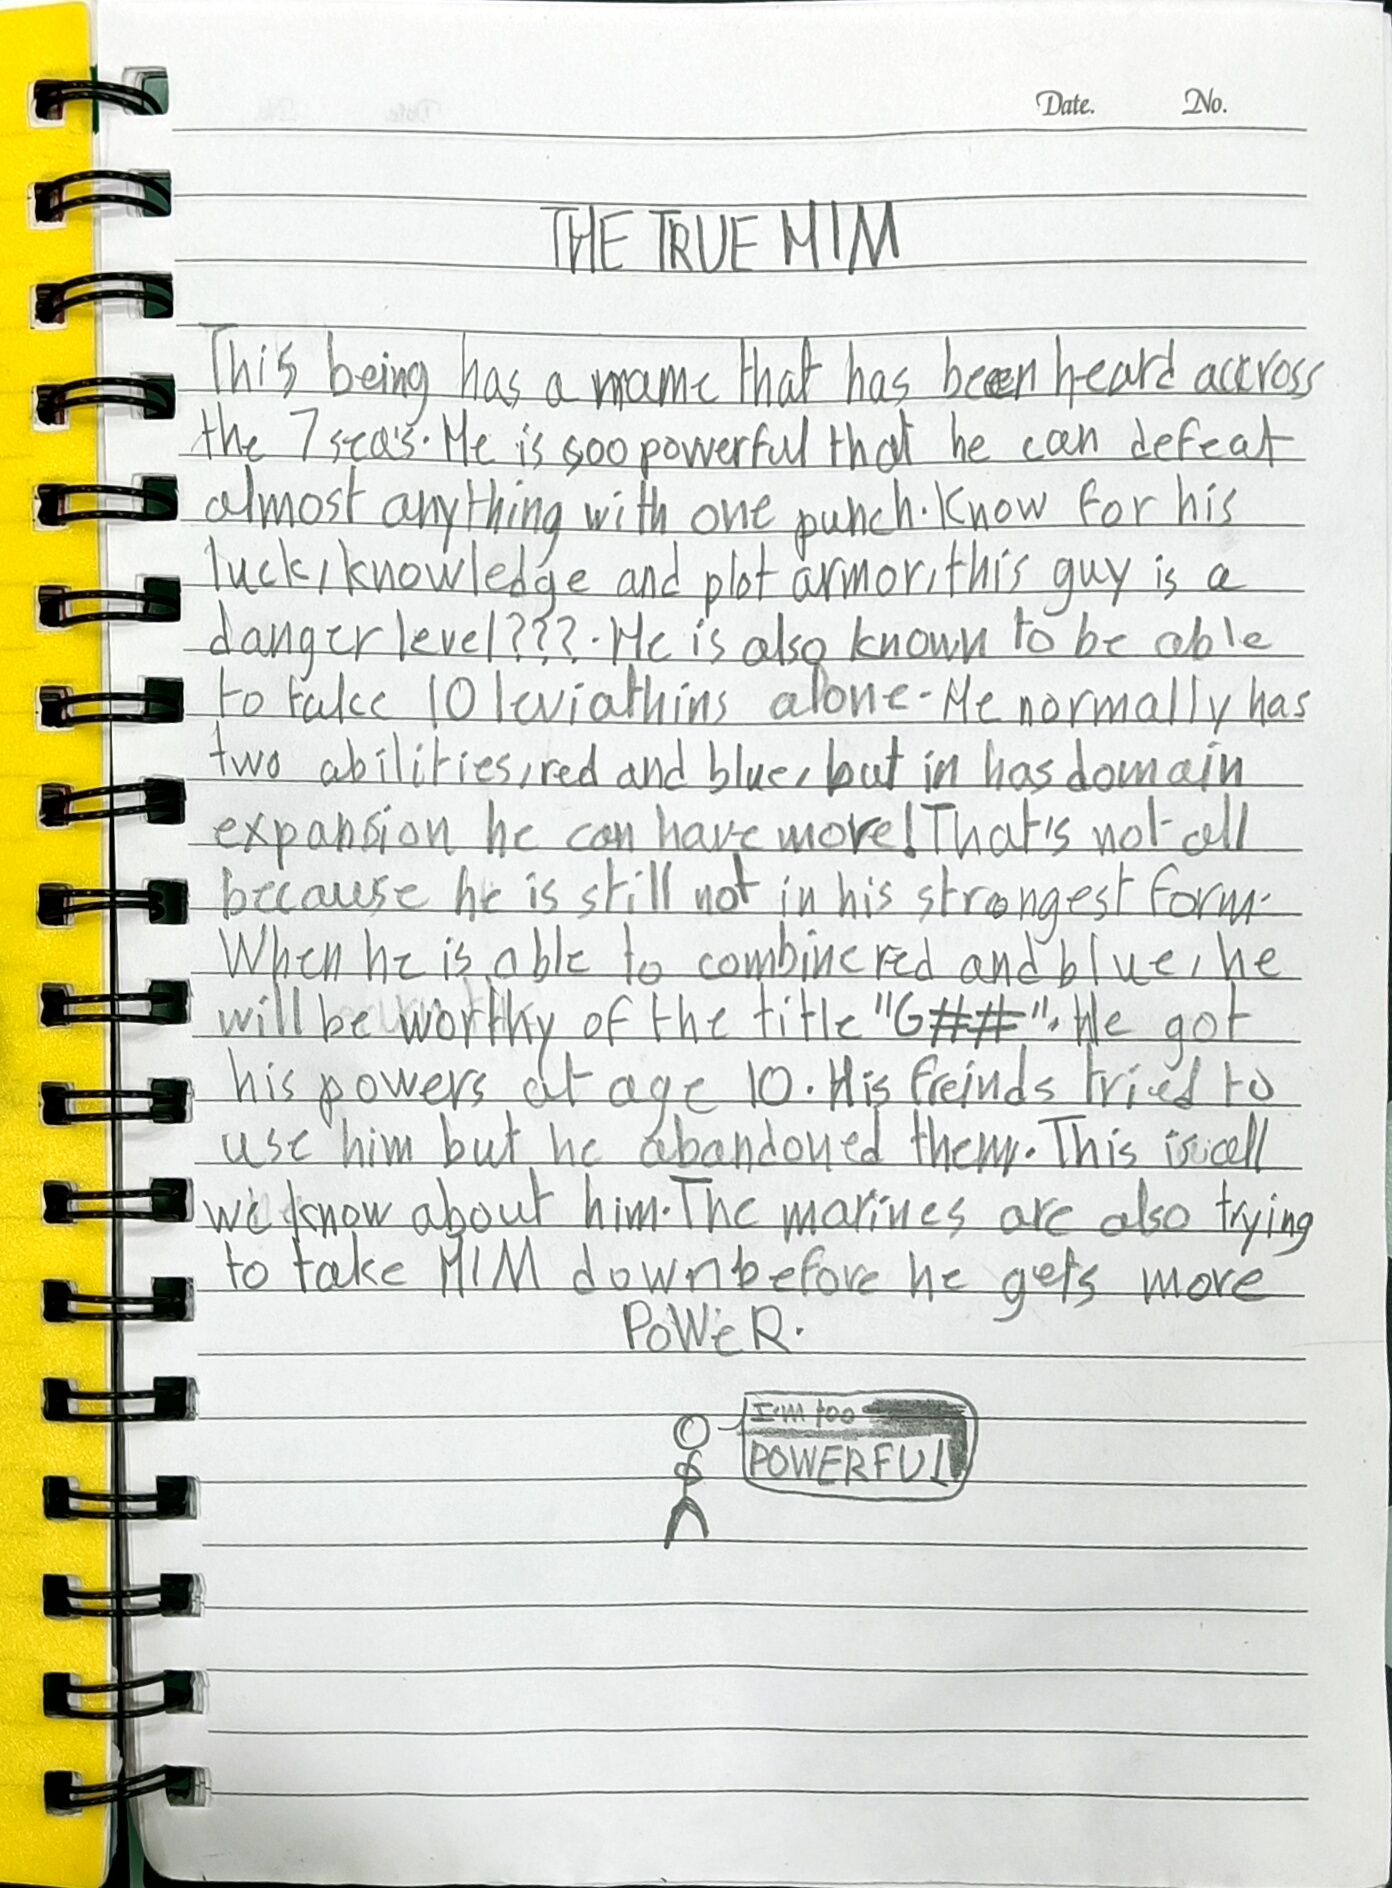 Date. No.
THE TRUE HIM
This being has a name that has been heard accross
the 7 sea's. He is soo powerful that he can defeat
almost anything with one punch. Know for his
luck, knowledge and plot armor, this guy is a
danger level ???. He is also known to be able
to take 10 leviathins alone. He normally has
two abilities, red and blue, but in has domain
expansion he can have more! That's not all
because he is still not in his strongest form.
When he is able to combine red and blue, he
will be worthy of the title "G##". He got
his powers at age 10. His freinds tried to
use him but he abandoned them. This is all
we know about him. The marines are also trying
to take HIM down before he gets more
PoWeR.
I'm too
POWERFUL